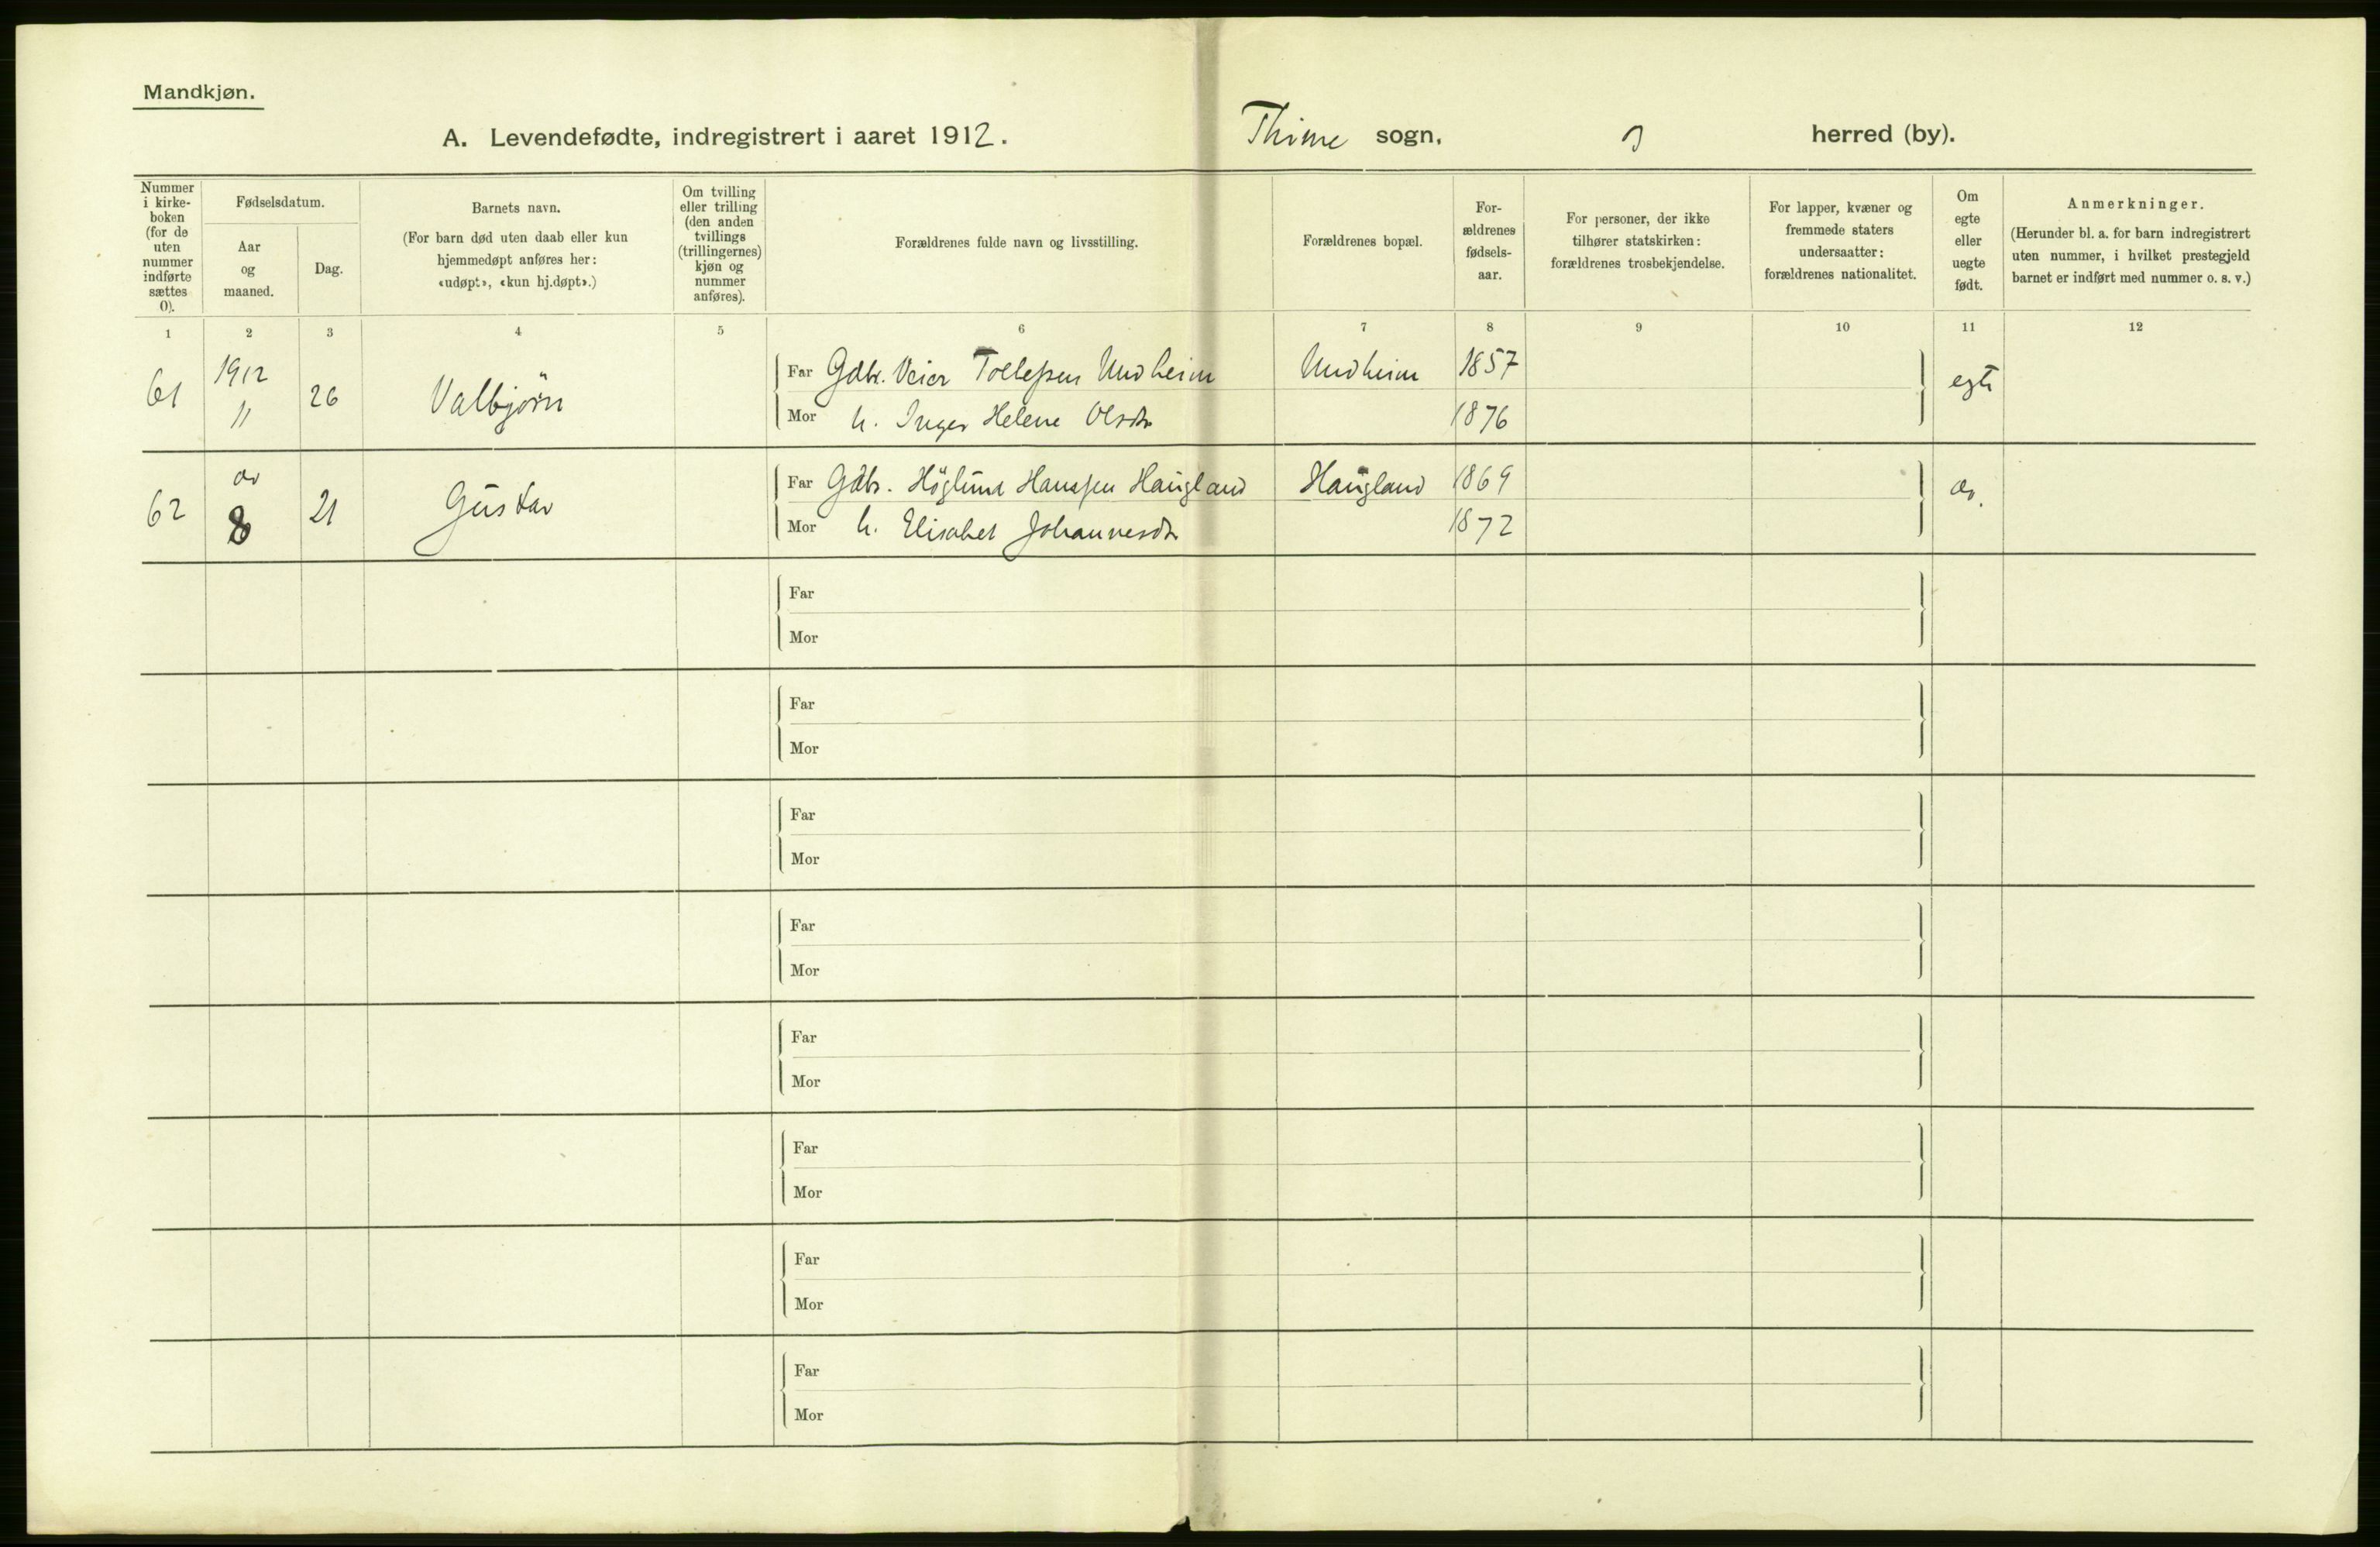 Mandkjøn.
A. Levendefødte, indregistrert i aaret 1912. Thime sogn, herred (by).
Nummer i kirke-boken (for de uten nummer indførte sættes 0).
Fødselsdatum.
Aar og maaned.
Dag.
Barnets navn.
(For barn død uten daab eller kun hjemmedøpt anføres her: «udøpt», «kun hj.døpt».)
Om tvilling eller trilling (den anden tvillings (trillingernes) kjøn og nummer anføres).
Forældrenes fulde navn og livsstilling.
Forældrenes bopæl.
For-ældrenes fødsels-aar.
For personer, der ikke tilhører statskirken: forældrenes trosbekjendelse.
For lapper, kvæner og fremmede staters undersaatter: forældrenes nationalitet.
Om egte eller uegte født.
Anmerkninger.
(Herunder bl. a. for barn indregistrert uten nummer, i hvilket prestegjeld barnet er indført med nummer o. s. v.)
1 2 3 4 5 6 7 8 9 10 11 12
61 1912 11 26 Valbjörn Far Gdbr. Veier Tollefsen Undheim Undheim 1857 egte
Mor h. Inger Helene Olsdtr 1876
62 do 8 21 Gustav Far Gdbr. Höglund Hanssen Haugland Haugland 1869 do.
Mor h. Elisabet Johannesdtr 1872
Far
Mor
Far
Mor
Far
Mor
Far
Mor
Far
Mor
Far
Mor
Far
Mor
Far
Mor